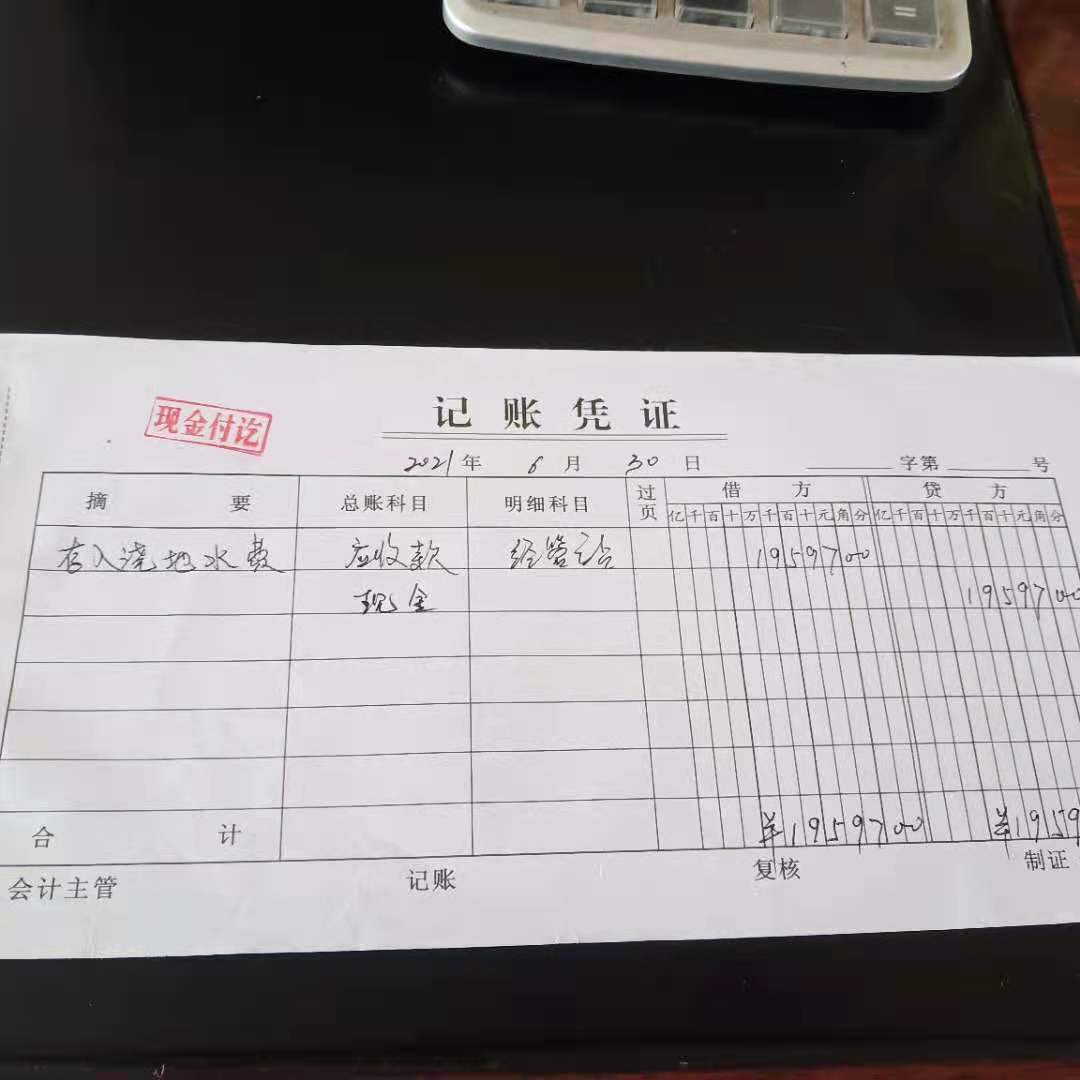 =
记账凭证
现金付讫
2021年 6月 30日 字第 号
摘要 总账科目 明细科目 过页 借方 贷方
亿千百十万千百十元角分 亿千百十万千百十元角分
存入浇地水费 应收款 经管站 1959700
现金 1959700
合计 ¥1959700 ¥1959
会计主管 记账 复核 制证